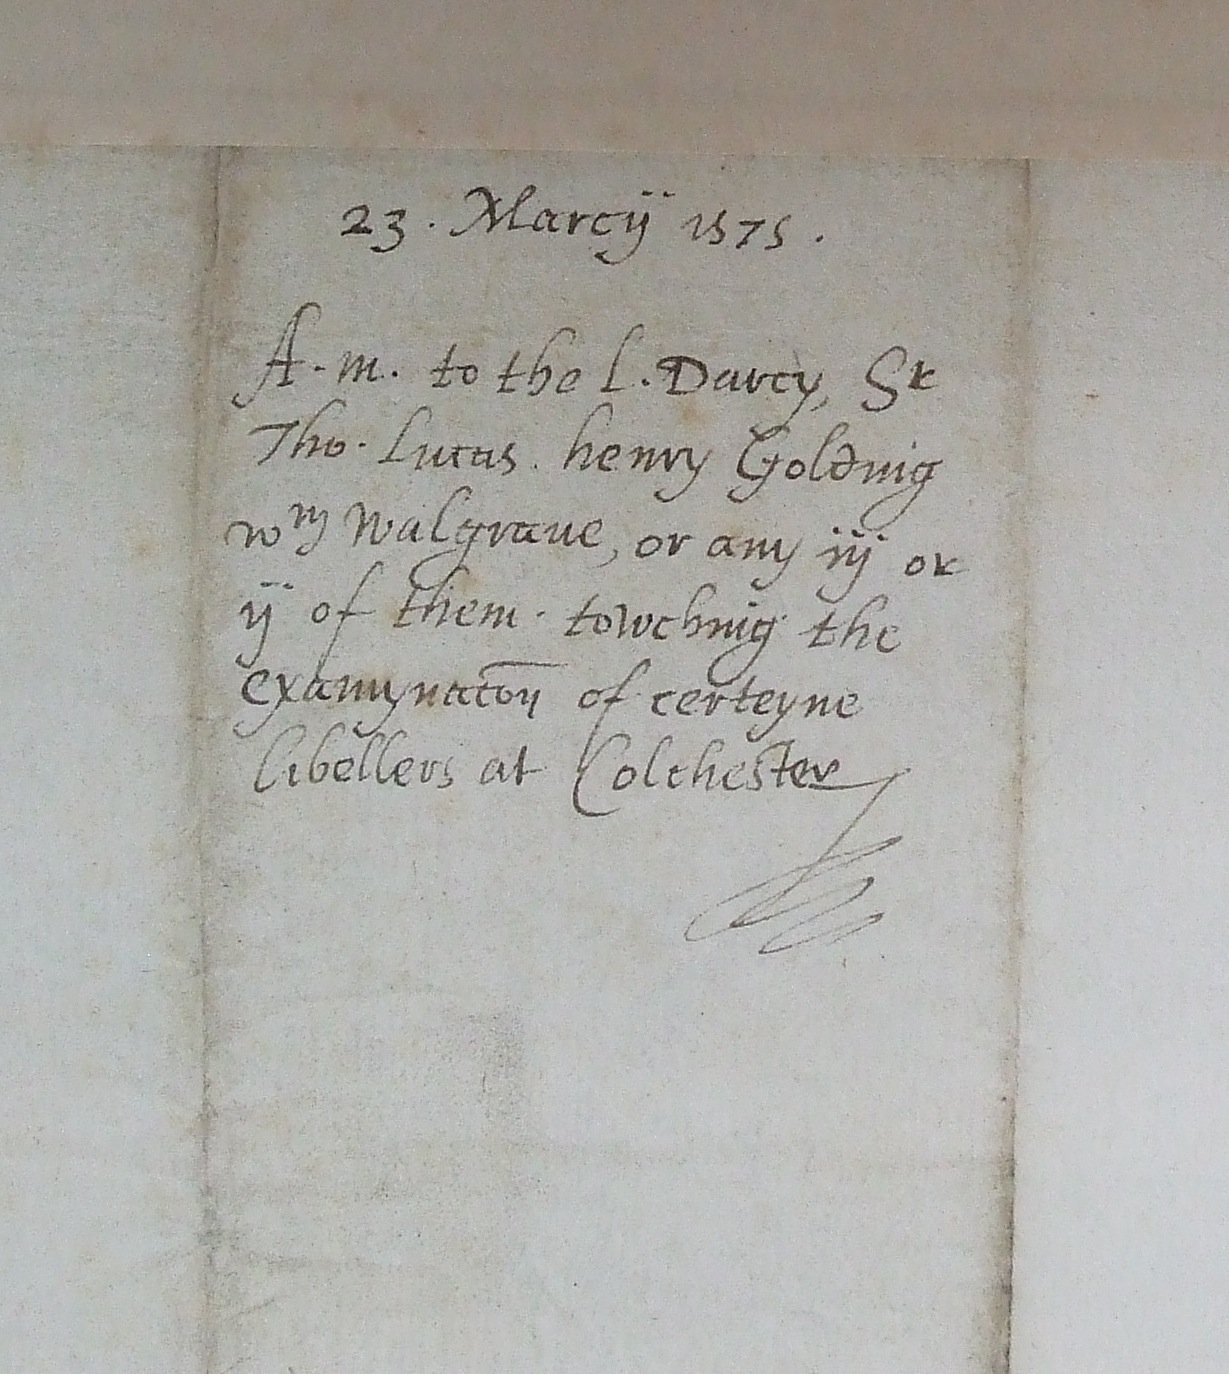 23 . Marcij 1575 .
A . m . to the L . Darcy, Sr
Tho . Lucas . henry Golding
wm Walgraue, or any iij or
ij of them . towching the
examynatōn of certeyne
libellers at Colchester